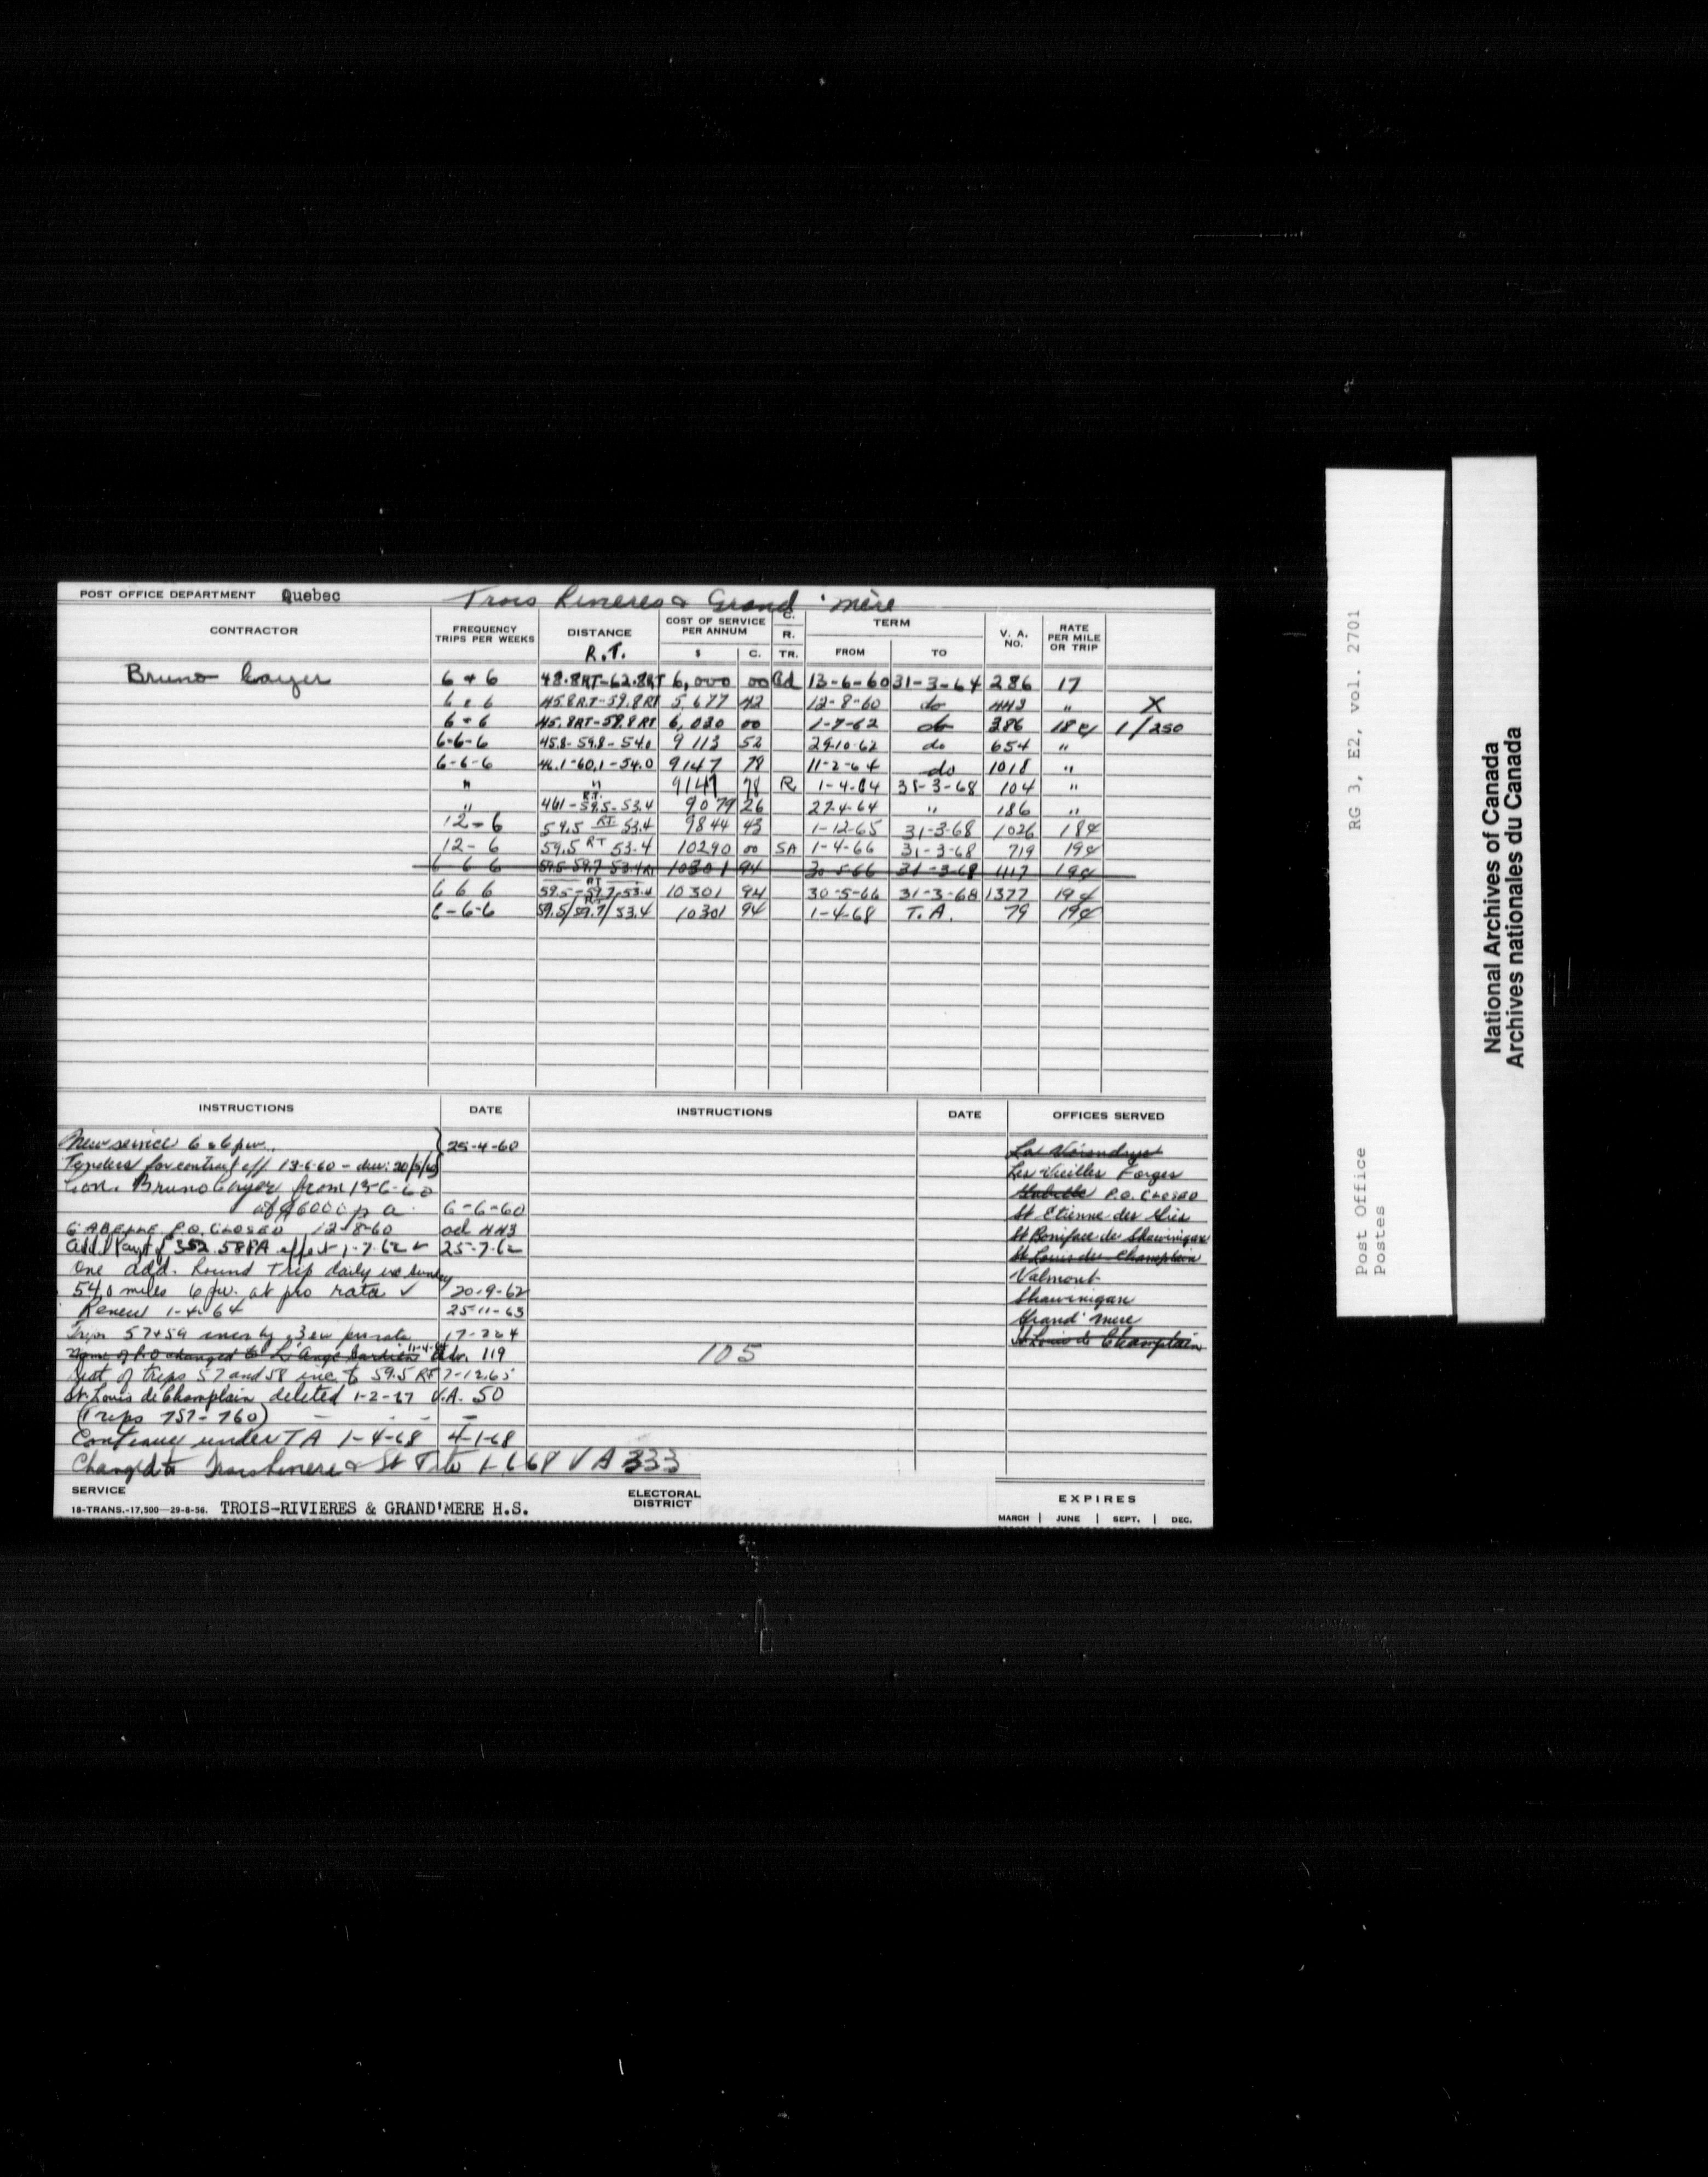 POST OFFICE DEPARTMENT Quebec Trois Rivieres & Grand 'mère
CONTRACTOR FREQUENCY TRIPS PER WEEKS DISTANCE R.T. COST OF SERVICE PER ANNUM $ C. C. R. TR. TERM FROM TO V. A. NO. RATE PER MILE OR TRIP
Bruno Cayer 6 & 6 48.8RT-62.8RT 6,000 00 13-6-60 31-3-64 286 17
6 & 6 45.8RT-59.8RT 5,677 42 12-8-60 do 443 " X
6 & 6 45.8RT-59.8RT 6,030 00 1-7-62 do 386 18¢ 1/250
6-6-6 45.8-59.8-54.0 9113 52 29-10-62 do 654 "
6-6-6 46.1-60.1-54.0 9147 78 11-2-64 do 1018 "
" " 9147 78 R 1-4-64 31-3-68 104 "
" 46.1-59.5-53.4 R.T. 9079 26 27-4-64 " 186 "
12-6 59.5 RT 53.4 9844 43 1-12-65 31-3-68 1026 18¢
12-6 59.5 RT 53.4 10290 00 SA 1-4-66 31-3-68 719 19¢
6 6 6 59.5-59.7-53.4RT 10301 94 30-5-66 31-3-68 1117 19¢
6 6 6 59.5-59.7-53.4 RT 10301 94 30-5-66 31-3-68 1377 19¢
6-6-6 59.5/59.7/53.4 RT 10301 94 1-4-68 T.A. 79 19¢
INSTRUCTIONS DATE INSTRUCTIONS DATE OFFICES SERVED
New service 6 & 6 pw. 25-4-60
Tenders for contract eff 13-6-60 - due: 20/5/60
Con. Bruno Cayer from 13-6-60
at $6000 p a. 6-6-60
GABELLE P.O. CLOSED 12-8-60 443
Add. Payt of 352.58 PA effect 1-7-62 25-7-62
One add. Round Trip daily
54.0 miles 6 pw. at pro rata 20-9-62
Renew 1-4-64 25-11-63
Trips 57 & 59 incr by .3 pro rata 17-2-64
Name of P.O changed to L'Ange Gardien 119
of trips 57 and 58 inc. to 59.5 RT 7-12-65
St. Louis de Champlain deleted 1-2-67 V.A. 50
(Trips 757-760)
Continue under TA 1-4-68 4-1-68
Changed to Trois Rivieres & St Tite 1-6-68 V A 333
105
La Vérendrye
Les Vieilles Forges
Gabelle P.O. CLOSED
St Etienne des Grès
St Boniface de Shawinigan
St Louis de Champlain
Valmont
Shawinigan
Grand' mere
St Louis de Champlain
SERVICE ELECTORAL DISTRICT EXPIRES
18-TRANS.-17,500—29-8-56. TROIS-RIVIERES & GRAND'MERE H.S. MARCH | JUNE | SEPT. | DEC.
RG 3, E2, vol. 2701
Post Office
Postes
National Archives of Canada
Archives nationales du Canada